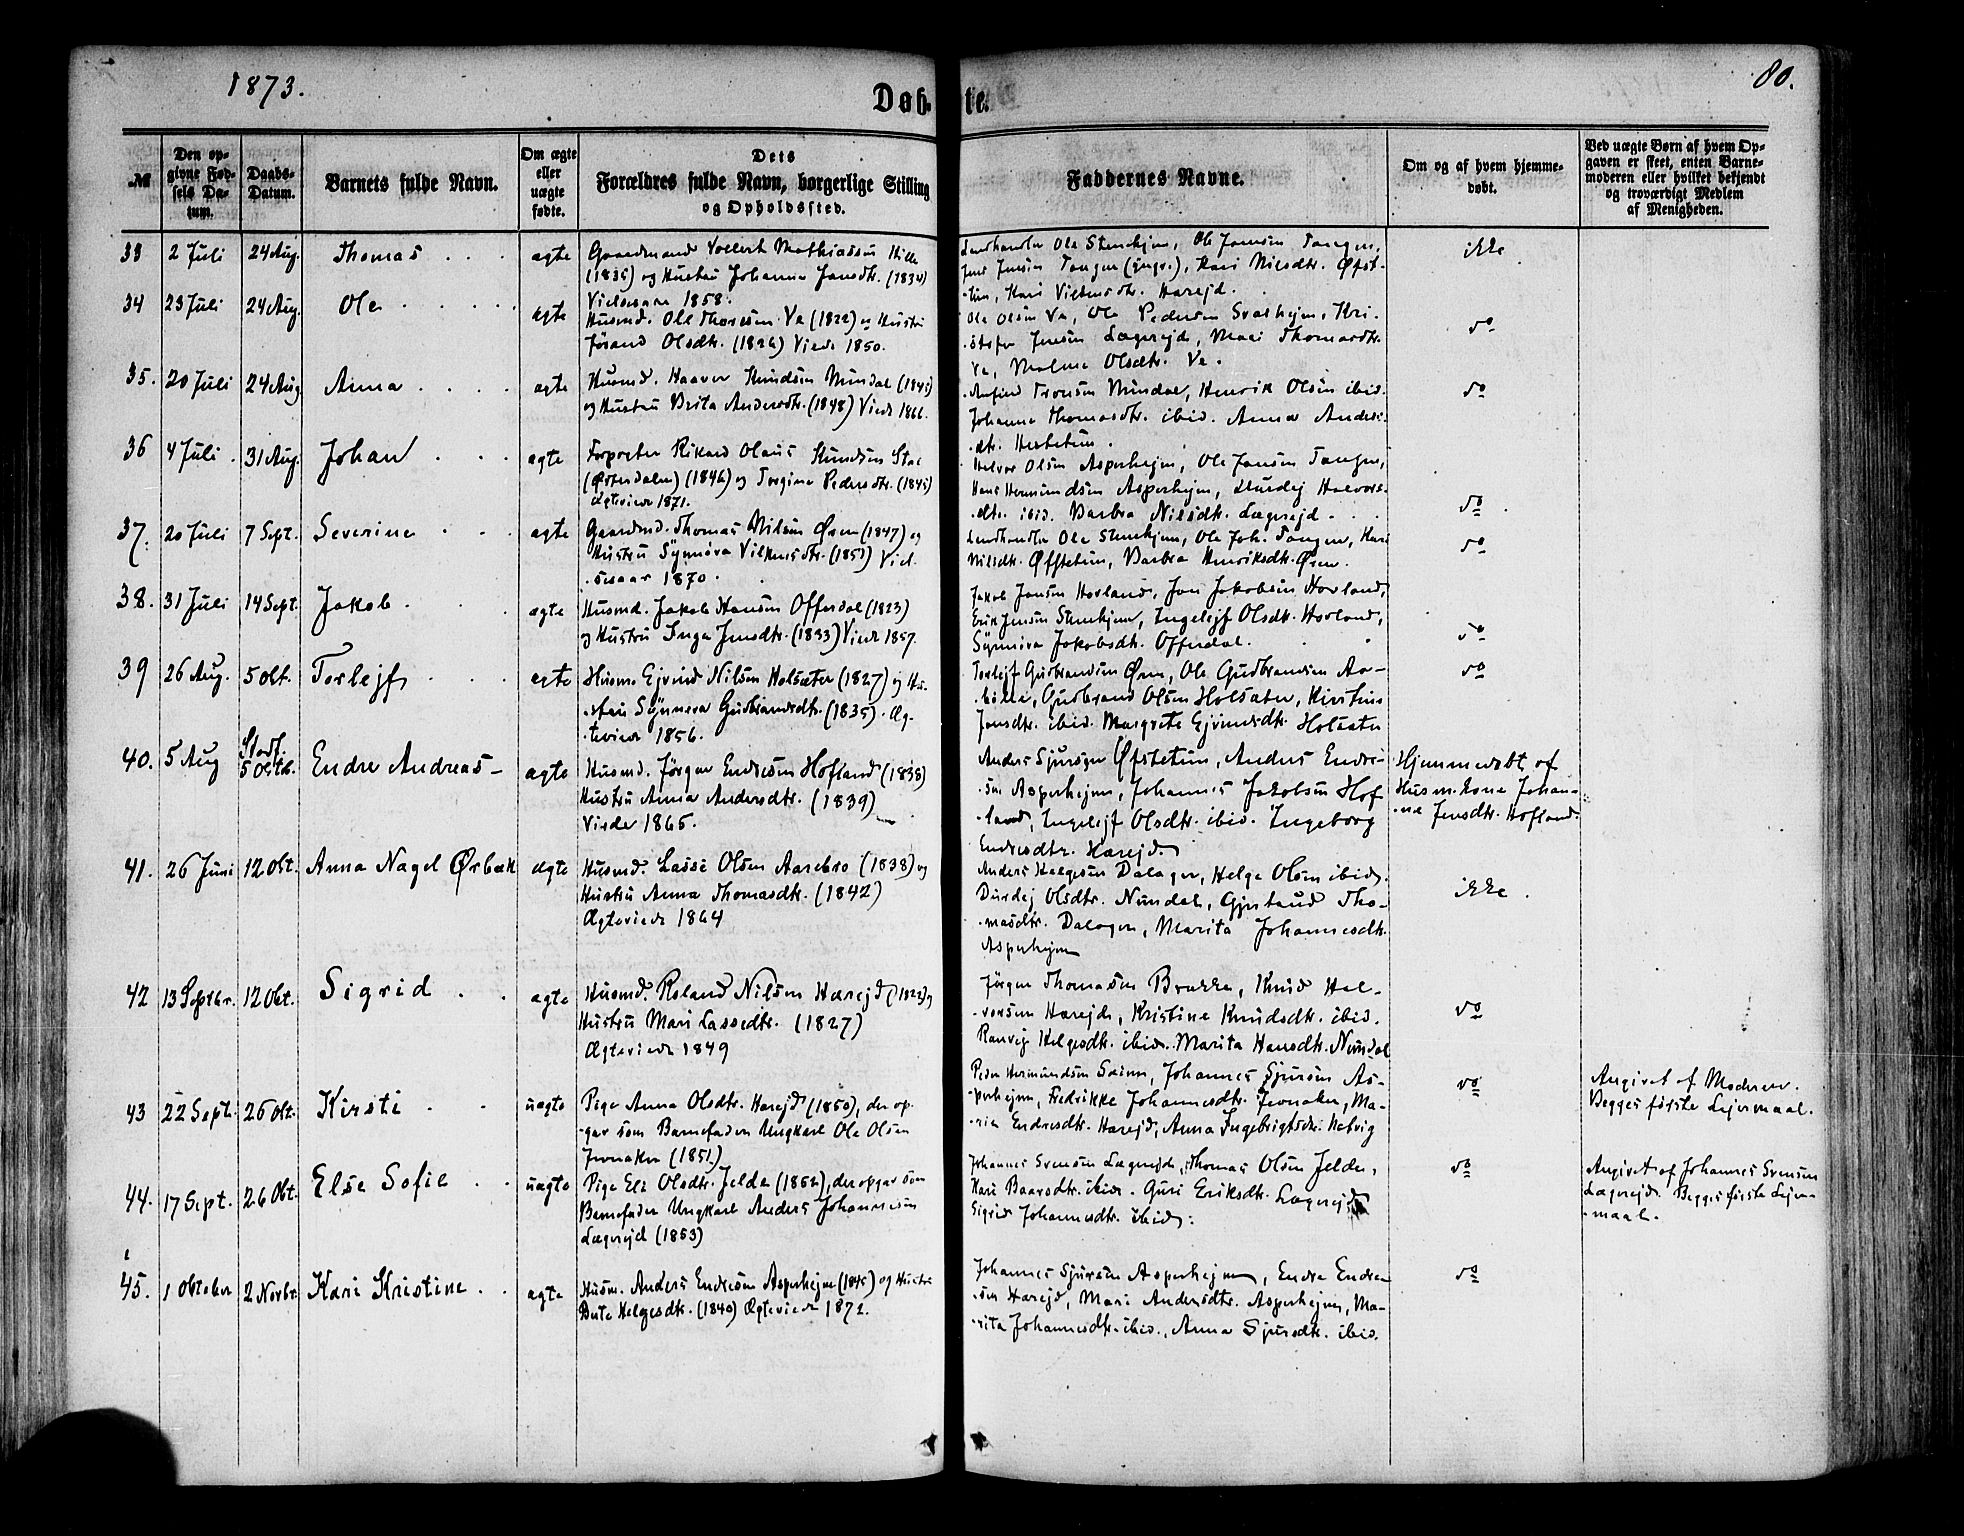 1873.
80.
Døb-te.
№
Den op-
givne Fød-
sels Da-
tum.
Daabs-
Datum.
Barnets fulde Navn.
Om ægte
eller
uægte
fødte.
Dets
Forældres fulde Navn, borgerlige Stilling
og Opholdssted.
Faddernes Navne.
Om og af hvem hjemme-
døbt.
Ved uægte Børn af hvem Op-
gaven er skeet, enten Barne-
moderen eller hvilket bekjendt
og troværdigt Medlem
af Menigheden.
33 2 Juli 24 Aug. Thomas ægte
Gaardmand Vollert Mathiassen
(1835) og Hustru Johanna Jansdtr. (1834)
Vielsesaar 1858.
Landhandler Ole Stenhjem, Ole Jansen Tangen,
Jens Jensen Tangen (yngr.), Kari Nilsdtr. Øfst-
-tun, Kari Vilkensdtr. Harejd.
ikke
34 23 Juli 24 Aug. Ole ægte
Husmd. Ole Thoresen Ve (1822) og Hustru
Jorand Olsdtr. (1826) Viede 1850.
Ole Olsen Ve, Ole Pedersen Svalhejm, Kri-
-stofer Jensen Lægrejd, Mari Thomasdtr.
Ve, Malene Olsdtr. Ve.
do
35. 20 Juli 24 Aug Anna ægte
Husmd. Haaver Knudsen Mundal (1845)
og Hustru Brita Andersdtr. (1848) Viede 1866.
Anfind Tronsen Mundal, Henrik Olsen ibid.
Johanna Thomasdtr. ibid. Anna Anders-
-dtr. Hestetun.
do
36 4 Juli. 31 Aug. Johan ægte
Forpagter Rikard Olaus Knudsen
(Østerdalen) (1846) og Torgine Pedersdtr. (1845)
Ægteviede 1871.
Halvor Olsen Asperhejm, Ole Jansen Tangen,
Hans Hermundsen Asperhejm, Halvors-
-dtr. ibid. Barbra Nilsdtr. Lægrejd.
do
37. 20 Juli 7 Sept. Severine ægte
Gaardmd. Thomas Nilsen Øren (1847) og
Hustru Synnøva Vilkensdtr. (1851) Viel-
-sesaar 1870.
Landhandler Ole Stenhjem, Ole Joh. Tangen, Kari
Nilsdtr. Øfstetun, Barbra Henriksdtr. Øren.
do
38. 31 Juli 14 Sept. Jakob ægte
Husmd. Jakob Hansen Offerdal (1823)
og Hustru Inga Jensdtr. (1833) Viede 1857.
Jakob Jansen Hovland, Jon Jakobsen Hovland,
Erik Jensen Stenhjem, Ingelejf Olsdtr. Hovland,
Synnøva Jakobsdtr. Offerdal.
do
39 26 Aug. 5 Okt. Torlejf ægte
Husm. Ejvind Nilsen Holsæter (1827) og Hu-
-stru Synneva Gudbrandsdtr. (1835). Æg-
-teviede 1856.
Torlejf Gudbrandsen Øren, Ole Gudbrandsen Aa-
Gudbrand Olsen Holsæter, Kirstine
Jensdtr. ibid. Margrete Ejvindsdtr. Holsæter
do
40. 5 Aug Stadf. 5 Oktb. Endre Andreas ægte
Husmd. Jørgen Endresen Hofland (1838)
Hustru Anna Andersdtr. (1839)
Viede 1865.
Anders Sjursøn Øfstetun, Anders Endre-
-sen Asperhejm, Johannes Jakobsen Hof-
-land, Ingelejf Olsdtr. ibid. Ingeborg
Endresdtr. Harejd.
Hjemmedøbt af
Husm. kone Johan-
-na Jensdtr. Hofland.
41. 26 Juni 12 Okt. Anna Nagel Ørbæk ægte
Husmd. Lasse Olsen Aarebro (1838) og
Hustru Anna Thomasdtr. (1842)
Ægteviede 1864
Anders Helgesen Dalagen, Helge Olsen ibid.
Durdej Olsdtr. Nundal, Gjertrud Tho-
-masdtr. Dalagen, Marita Johannesdtr.
Asperhejm
ikke.
42 13 Septbr. 12 Okt. Sigrid ægte
Husmd. Roland Nilsen Harejd (1822) og
Hustru Mari Lassedtr. (1827)
Ægteviede 1849
Jørgen Thomasen Brække, Knud Hal-
-vorsen Harejd, Kristine Knudsdtr. ibid.
Ranvej Helgesdtr. ibid. Marita Hansdtr. Nundal
do
43 22 Sept. 26 Okt. Kirsti uægte
Pige Anna Olsdtr. Harejd (1850), der op-
-gav som Barnefader Ungkarl Ole Olsen
Jevnaker (1851.)
Peder Hermundsen Sæim, Johannes Sjursen As-
-perhejm, Fredrikke Johannesdtr. Jevnaker, Ma-
-rie Endresdtr. Harejd, Anna Ingebrigtsdtr. Natvig
do
Angivet af Moderen.
Begges første Lejermaal.
44. 17 Sept. 26 Okt. Else Sofie uægte
Pige Eli Olsdtr. Jelde (1852), der opgav som
Barnefader Ungkarl Anders Johannesen
Lægrejd (1853)
Johannes Svensen Lægrejd, Thomas Olsen Jelde,
Kari Baarsdtr. ibid. Guri Eriksdtr. Lægrejd
Sigrid Johannesdtr. ibid.
do
Angivet af Johannes Svensen
Lægrejd. Begges første Lejer-
-maal.
45. 1 Oktober 2 Novbr. Kari Kristine ægte
Husm. Anders Endresen Asperhejm (1845) og Hustru
Brita Helgesdtr. (1840) Ægteviede 1872.
Johannes Sjursen Asperhejm, Endre Endre-
-sen Harejd, Mari Andersdtr. Asperhejm, Ma-
-rita Johannesdtr. ibid., Anna Sjursdtr. ibid.
do